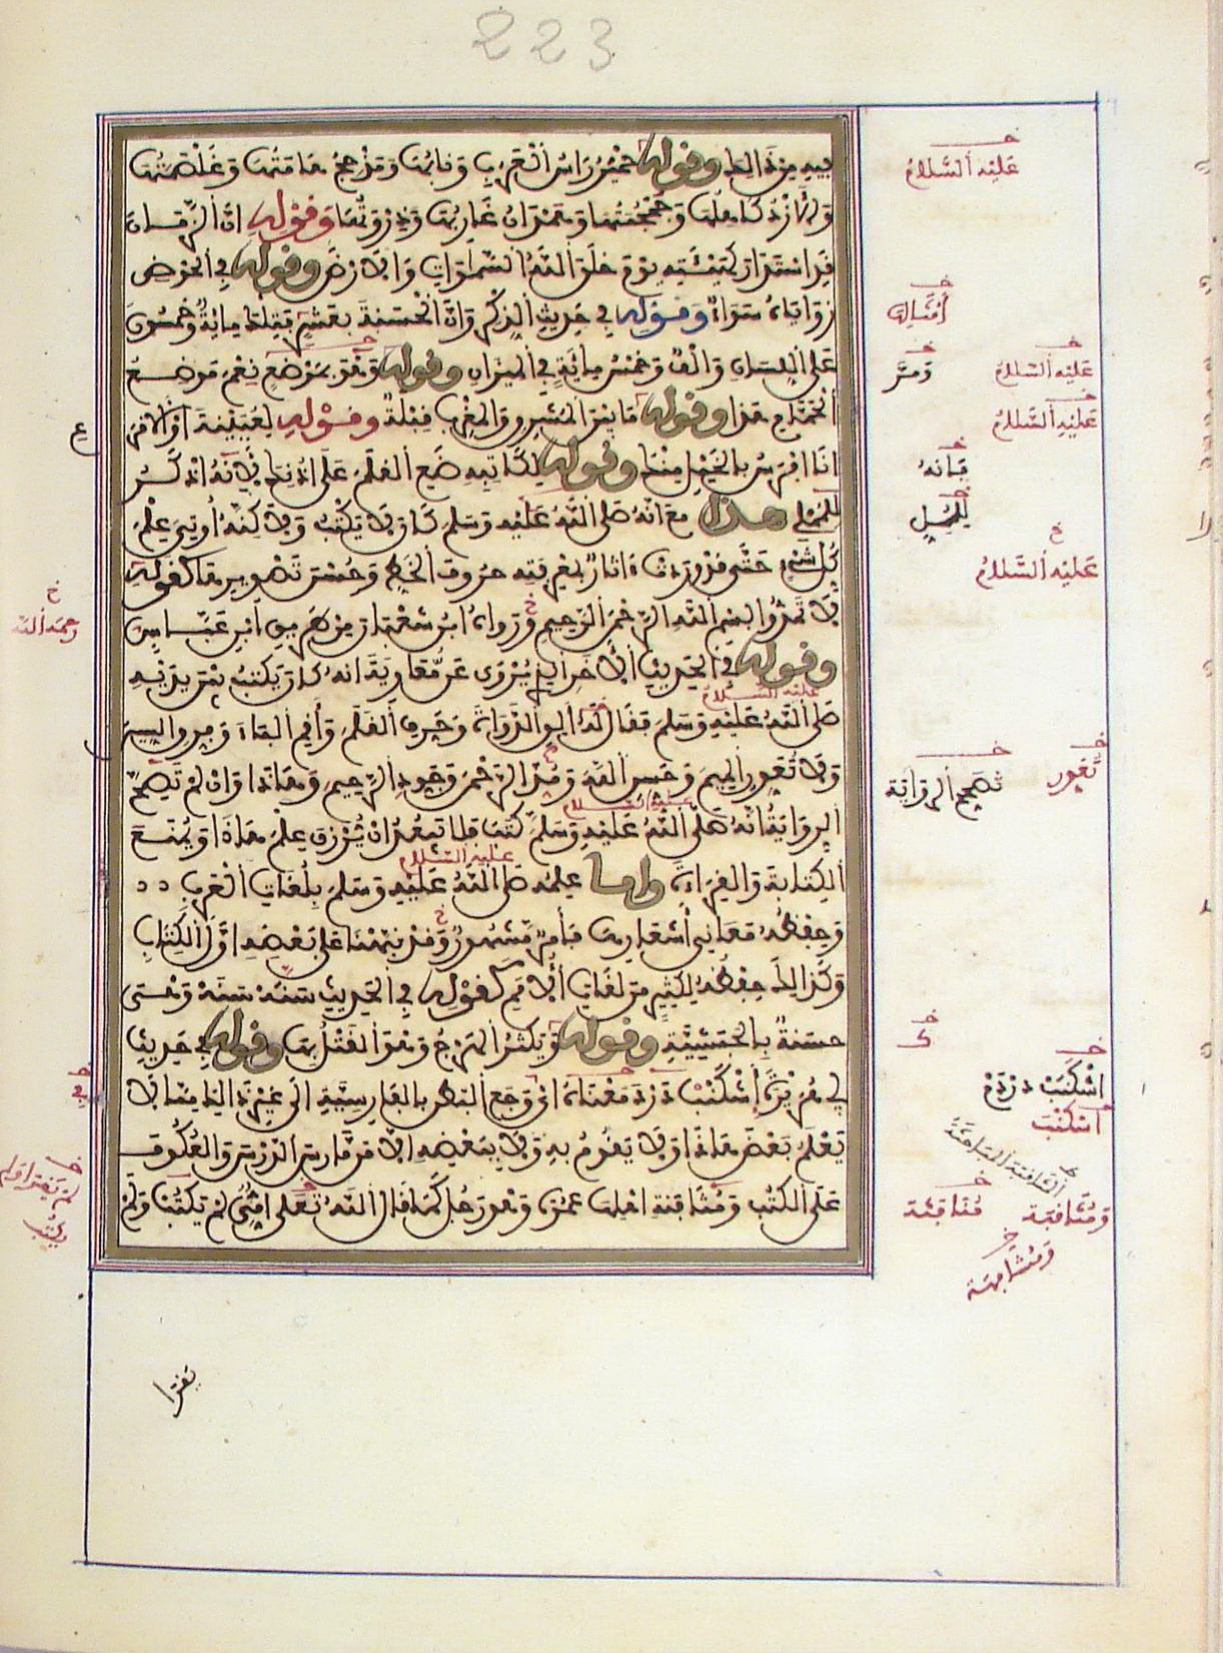 223
فيه من ذالك وقوله حمير رأس العرب ونابها ومذحج هامتها وغلصمتها
والازد كاهلها وجمجمتها وهمدان غاربها وذروتها وقوله ان الزمان
قد استدار كهيئته يوم خلق الله السماوات والارض وقوله في الحوض
زواياه سواء وقوله في حديث الذكر وان الحسنة بعشر فتلك مائة وخمسون
على اللسان والف وخمس مائة في الميزان وقوله وهو بموضع نعم موضع
الحمام هذا وقوله ما بين المشرق والمغرب قبلة وقوله لعيينة او الاقرع
انا افرس بالخيل منك وقوله لكاتبه ضع القلم على اذنك فانه اذكر
للممل هذا مع انه صلى الله عليه وسلم كان لا يكتب ولاكنه أوتي علم
كل شيء حتى قد وردت ءاثار بمعرفته حروف الخط وحسن تصويرها كقوله
لا تمدوا بسم الله الرحمن الرحيم ورواه ابن شعبان من طريق ابن عباس
وقوله في الحديث الاخر الذي يروى عن معاوية انه كان يكتب بين يديه
صلى الله عليه وسلم فقال له الق الدواة وحرف القلم وأقم الباء وفرق السين
ولا تعور الميم وحسن الله ومد الرحمن وجود الرحيم وهاذا وان لم تصح
الرواية انه صلى الله عليه وسلم كتب فلا يبعد ان يرزق علم هاذا ويمنع
الكتابة والقراءة واما علمه صلى الله عليه وسلم بلغات العرب
وحفظه معاني أشعارها فأمر مشهور وقد نبهنا على بعضه اول الكتاب
وكذالك حفظه لكثير من لغات الامم كقوله في الحديث سنه سنه وهي
حسنة بالحبشية وقوله ويكثر الهرج وهو القتل بها وقوله في حديث
ابي هريرة إشكنب دزد معناه اي وجع البطن بالفارسية الى غير ذالك مما لا
يعلم بعض هاذا ولا يقوم به ولا ببعضه الا من مارس الدرس والعكوف
على الكتب ومثافنة اهلها عمره وهو رجل كما قال الله تعلى امي لم يكتب ولم
عليه السلام
أمثاله
عليه السلام
ومر
عليه السلام
فانه
للممل
عليه السلام
رحمه الله
تعور
تصح الرواية
اشكنب دردم
اشكنب
ومثافنة
مثاقبة
يقرا